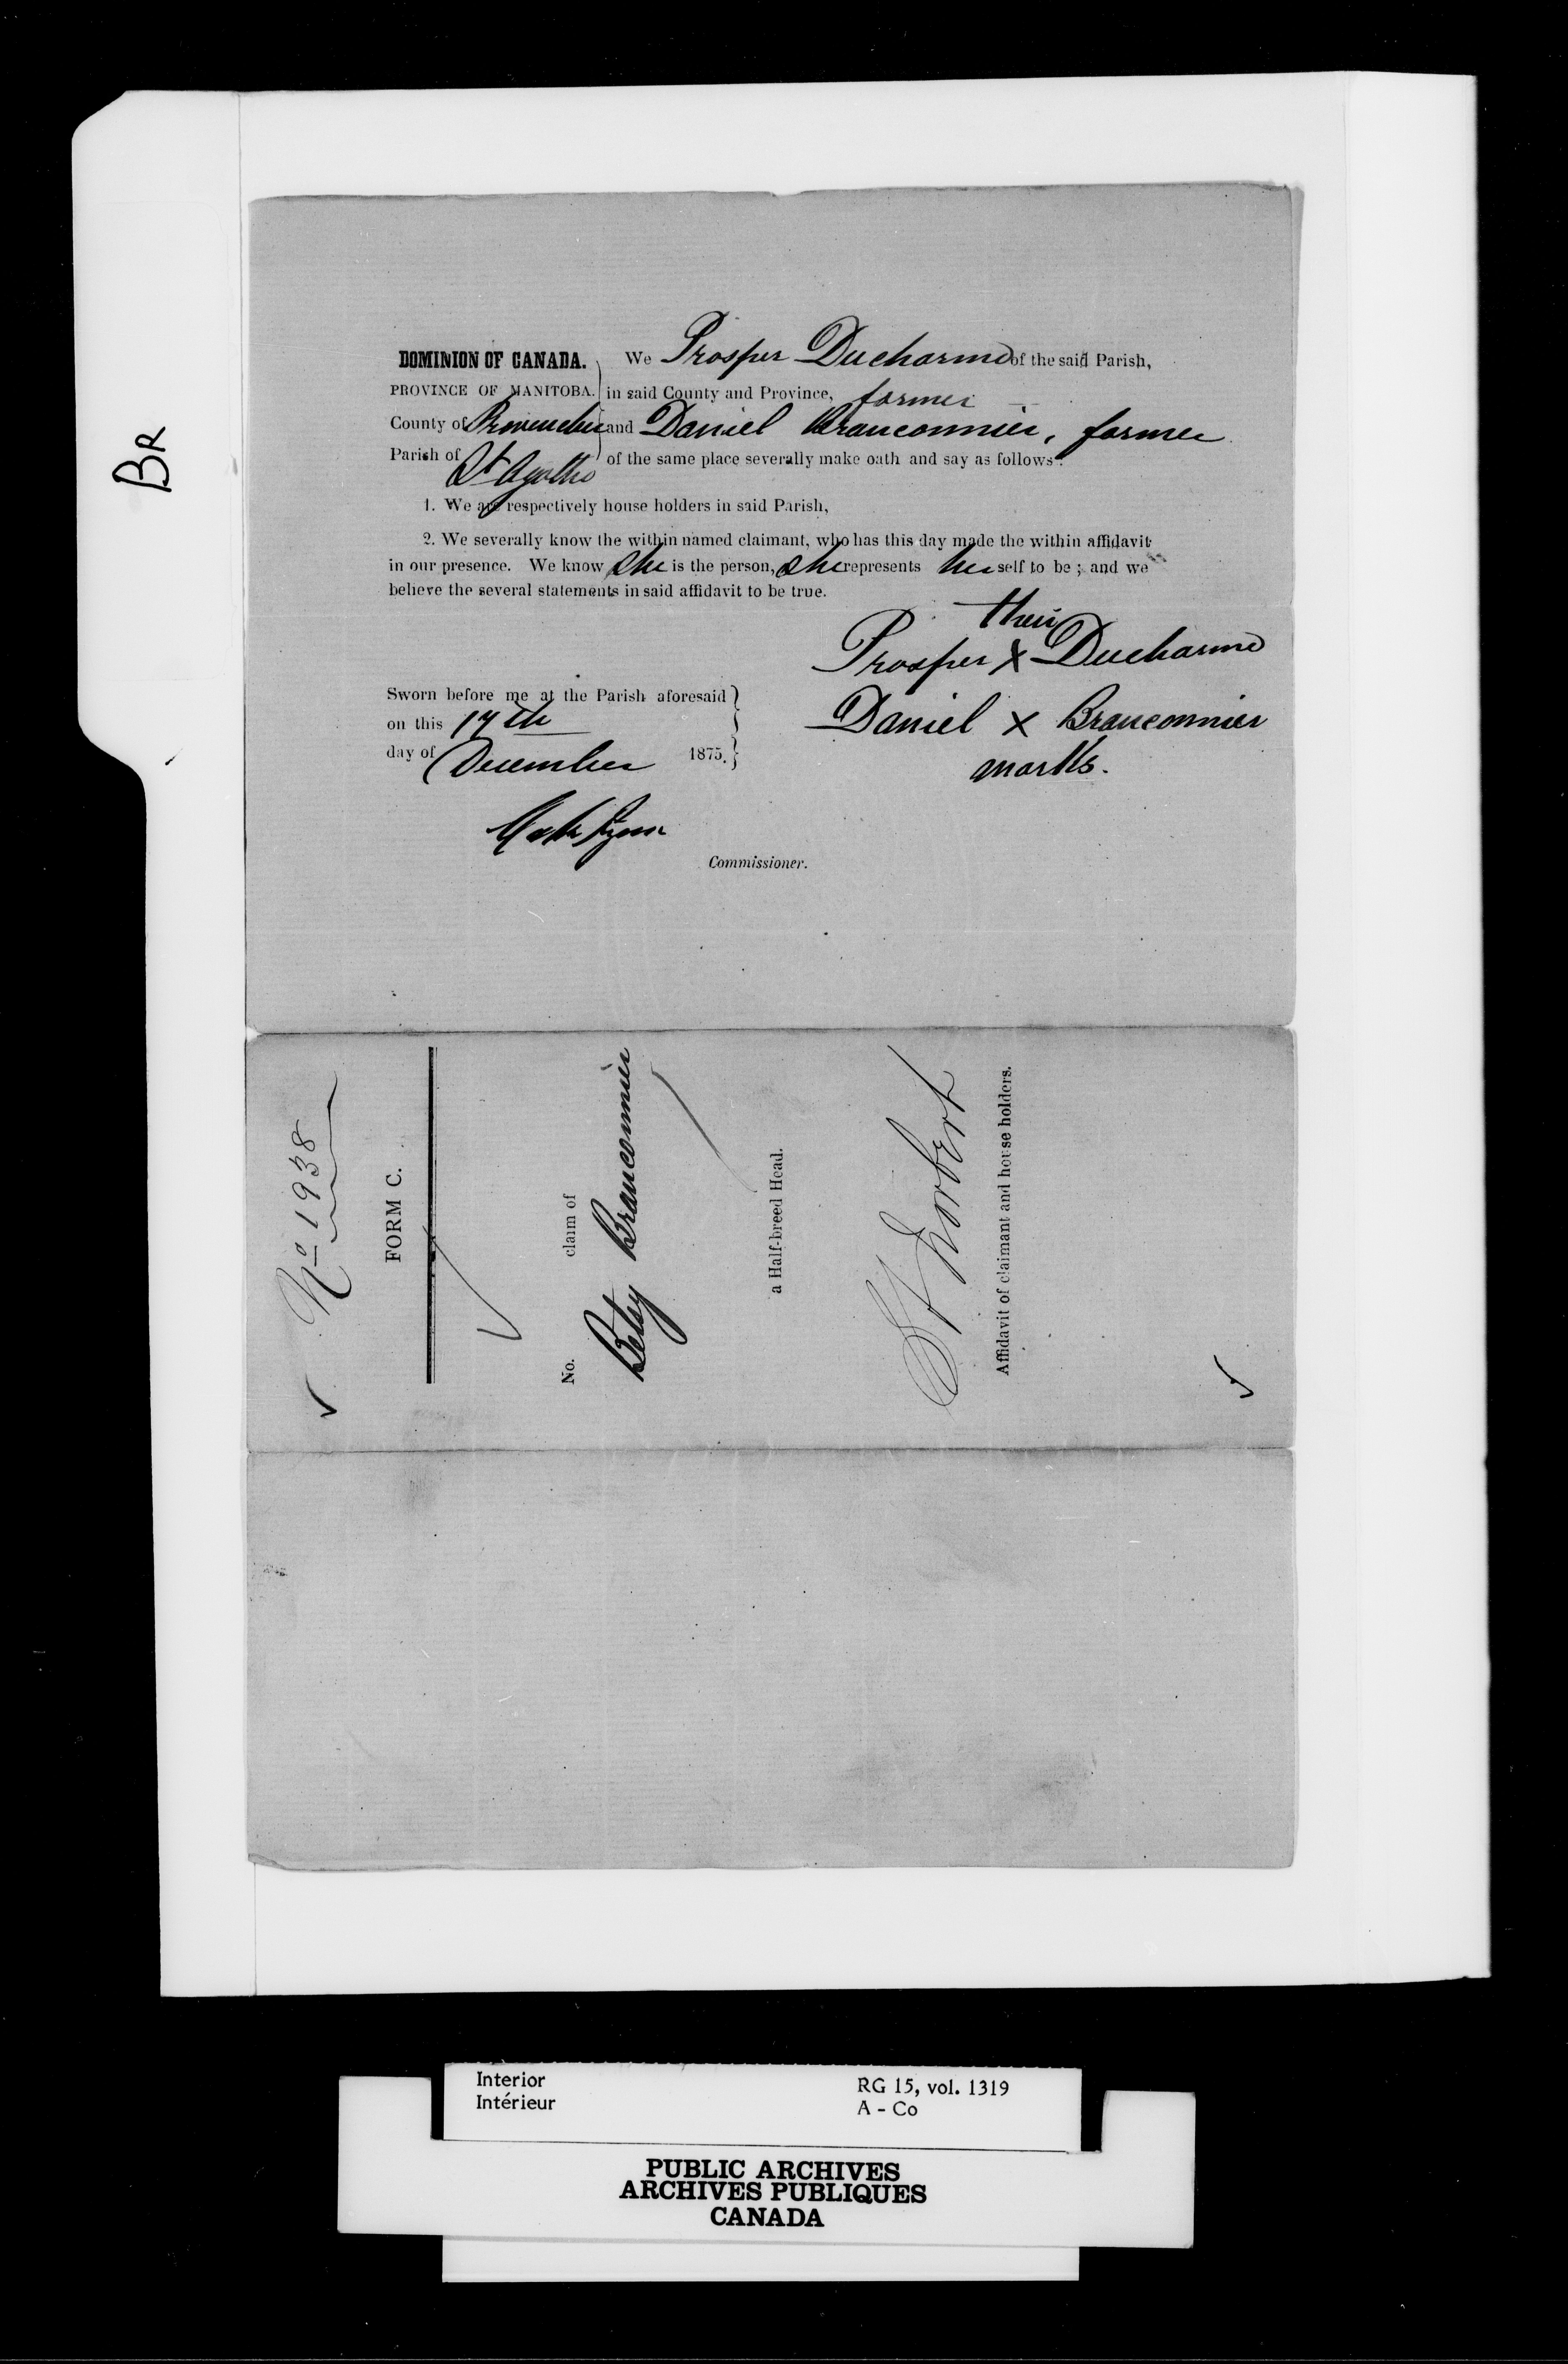 BR
DOMINION OF CANADA. We Prosper Ducharme of the said Parish,
PROVINCE OF MANITOBA. in said County and Province, farmer
County of Provencher and Daniel Brauconnier, farmer
Parish of St Agathe of the same place severally make oath and say as follows:
1. We are respectively house holders in said Parish,
2. We severally know the within named claimant, who has this day made the within affidavit
in our presence. We know she is the person, she represents herself to be; and we
believe the several statements in said affidavit to be true.
their
Prosper X Ducharme
Sworn before me at the Parish aforesaid
on this 17th
Daniel X Brauconnier
day of December 1875.
marks.
Commissioner.
No 1938
FORM C.
No. claim of
Betsy Brauconnier
a Half-breed Head.
St Norbert
Affidavit of claimant and house holders.
Interior
Intérieur
RG 15, vol. 1319
A - Co
PUBLIC ARCHIVES
ARCHIVES PUBLIQUES
CANADA